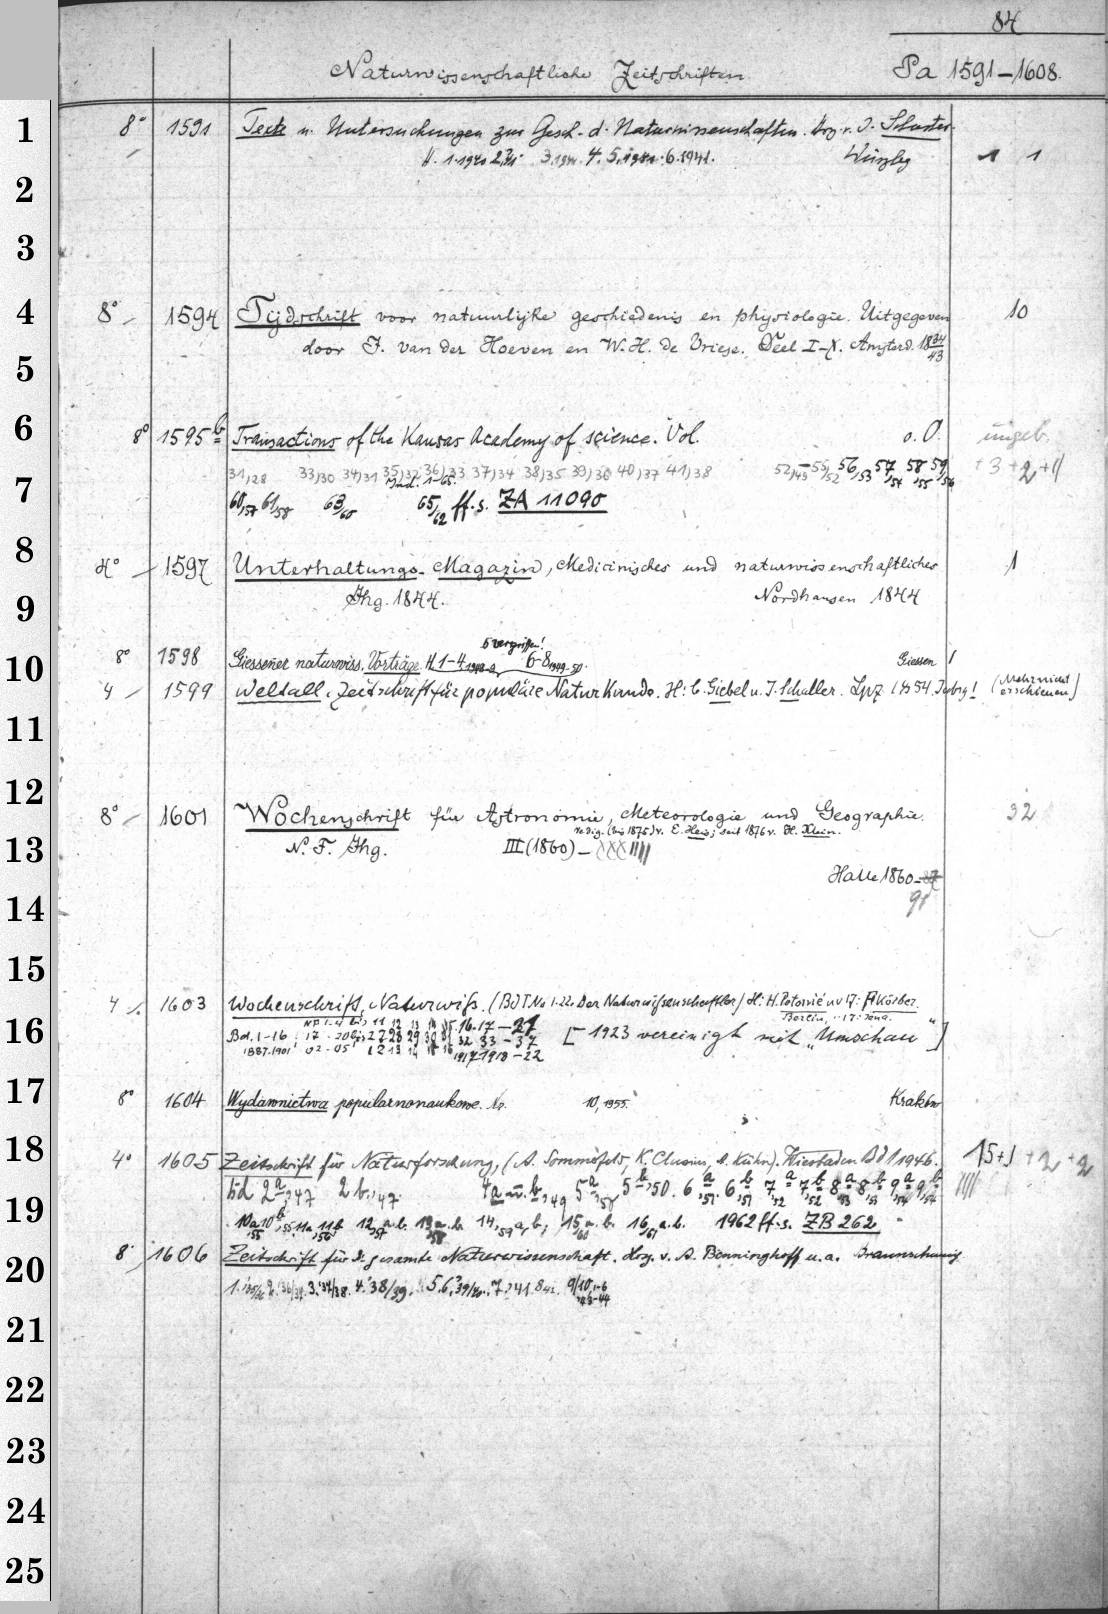 84
Naturwissenschaftliche Zeitschriften Pa 1591–1608.
1
8° 1591 Texte u. Untersuchungen zur Gesch. d. Naturwissenschaften. Hrg. v. J. Schuster.
H. 1.1940 3.1941. 4. 5.1941. 6.1941. 1 1
2
3
4
8° 1594 Tijdschrift voor natuurlijke geschiedenis en physiologie. Uitgegeven 10
door J. van der Hoeven en W. H. de Vriese. Deel I–X. Amsterd. 1834/43
5
6
8° 1595 b Transactions of the Kansas Academy of science. Vol. o. O. ungeb.
31,28 33,30 34,31 35,32 36,33 37,34 38,35 39,36 40,37 41,38 52,/49–55,/52 56,/53 57,/54 58,/55 59,/56 +3 +2 +1
Ind. 1–65.
7
60,/57 61,/58 63,/60 65,/62 ff. s. ZA 11090
8
4° 1597 Unterhaltungs-Magazin, Medicinisches und naturwissenschaftliches 1
9
Jhg. 1844. Nordhausen 1844
5 vergriffen!
10
8° 1598 Giessener naturwiss. Vorträge. H. 1–4 6–8 1949–50. Giessen 1
4 1599 Weltall. Zeitschrift für populäre Naturkunde. H: C. Giebel u. J. Schaller. Lpz. 1854. Jahrg 1 (Mehr nicht erschienen)
11
12
8° 1601 Wochenschrift für Astronomie, Meteorologie und Geographie. 32
redig. (bis 1875) v. E. Heis; seit 1876 v. H. Klein.
13
N. F. Jhg. III (1860) – XXXIIII
Halle 1860–87
91
14
15
4 1603 Wochenschrift, Naturwiss. (Bd I No 1–22. Der Naturwissenschaftler) H: H. Potonié u v 17: A Kölber.
Berlin, 17: Jena.
NF. 1–4 bis 11 12 13 14 15. 16. 17–21
16
Bd. 1–16 17–20 27 28 29 30 31 32 33–37 [– 1923 vereinigt mit „Umschau“]
1887–1901 02–05 12 13 14 15 16 1917 1918–22
17
8° 1604 Wydawnictwa popularnonaukowe. Nr. 10, 1955. Kraków
18
4° 1605 Zeitschrift für Naturforschung, (A. Sommerfeld, K. Clusius, A. Kühn). Wiesbaden Bd 1 1946. 15+1 +2 +2
Bd 2a,47 2b,47. 4a u. b,49 5a,50 5b,50. 6a,51. 6b,51 7a,52 7b,52 8a,53 8b,53 9a,54 9b,54
19
10a 10b,55, 11a, 11b,56 12,57 a. b. 13,58 a. b. 14,59 a, b; 15,60 a. b. 16,61 a. b. 1962 ff. s. ZB 262
20
8° 1606 Zeitschrift für d. gesamte Naturwissenschaft. Hrg. v. A. Benninghoff u. a. Braunschweig
1.'35/36 2.'36/37. 3.'37/38. 4.'38/39. 5. 6.'39/40. 7.'41. 8 42. 9/10,1–6 '43–44
21
22
23
24
25